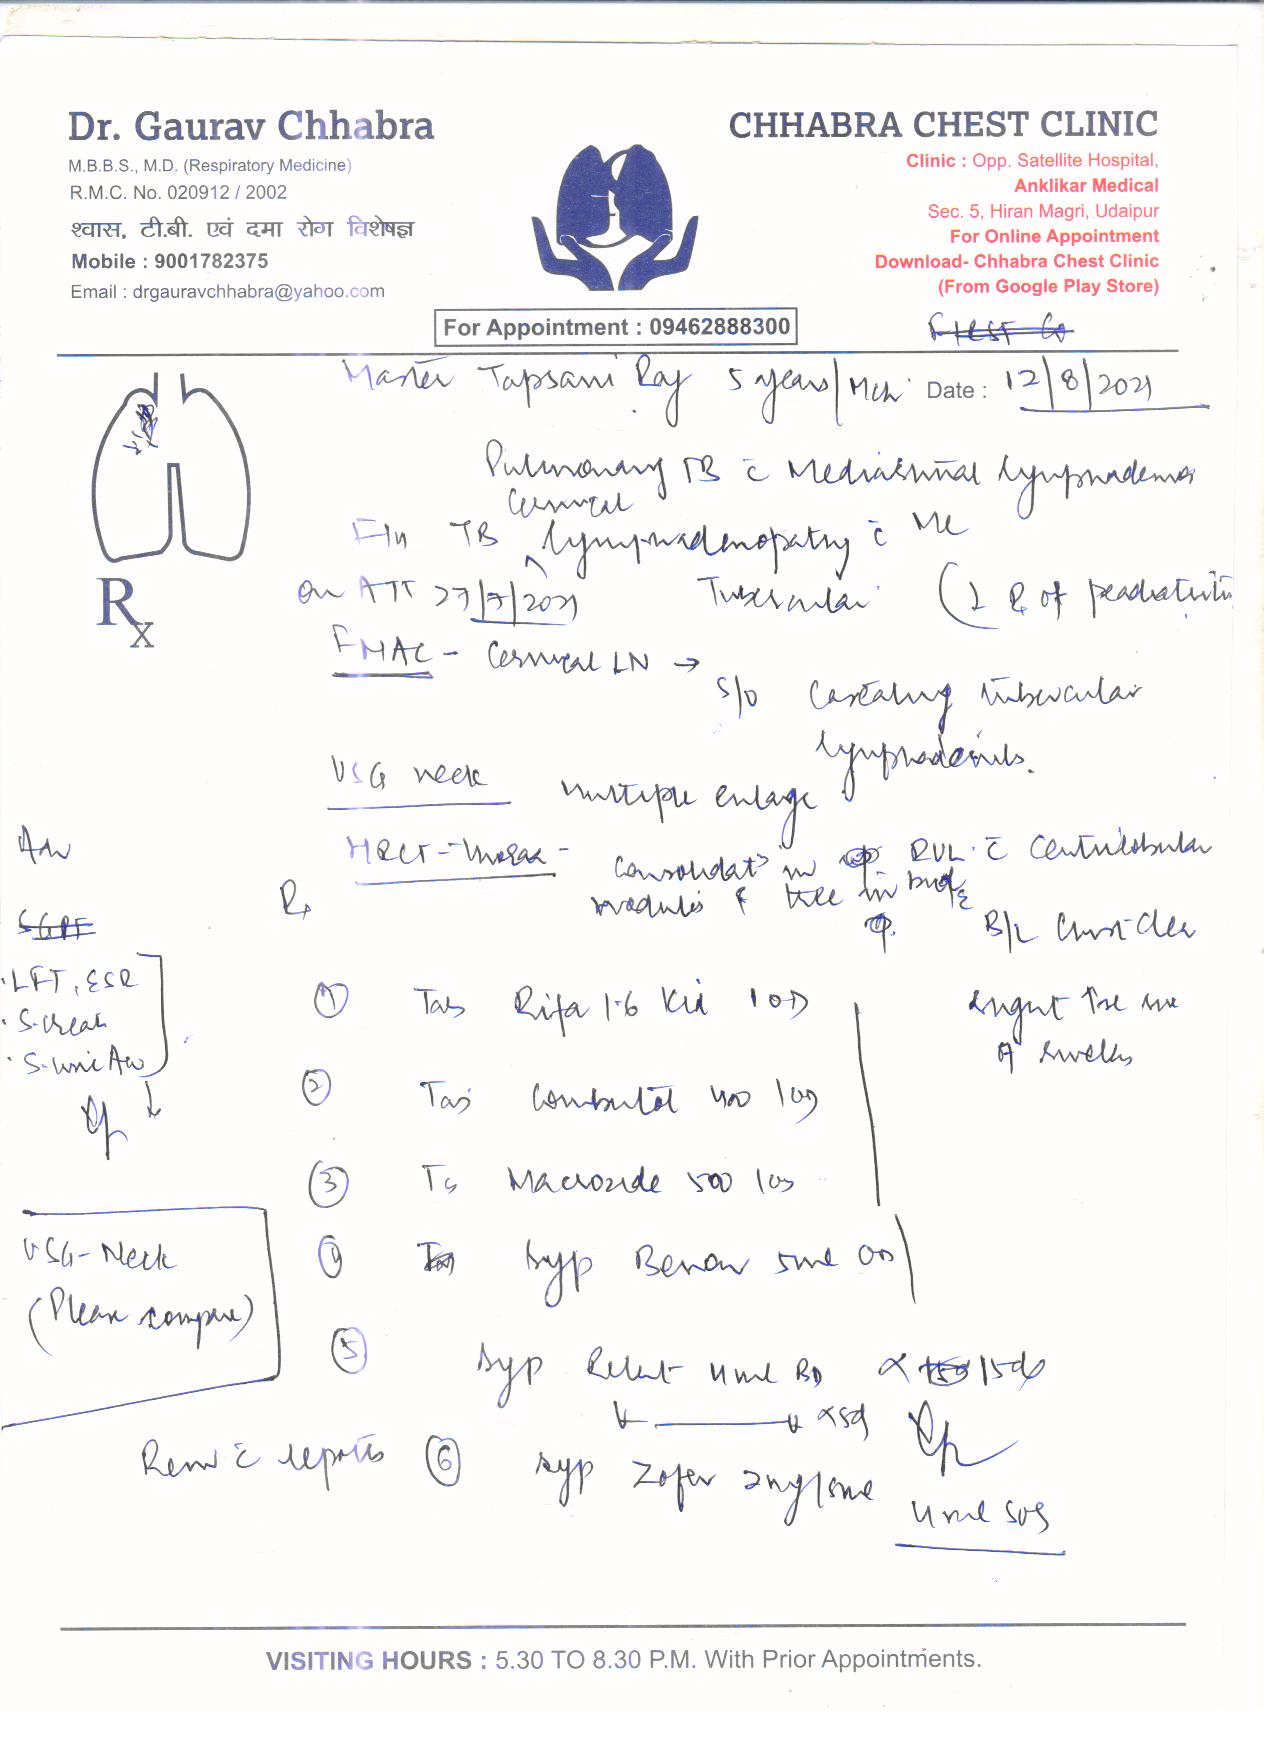 Dr. Gaurav Chhabra
M.B.B.S., M.D. (Respiratory Medicine)
R.M.C. No. 020912 / 2002
श्वास, टी.बी. एवं दमा रोग विशेषज्ञ
Mobile : 9001782375
Email : drgauravchhabra@yahoo.com
CHHABRA CHEST CLINIC
Clinic : Opp. Satellite Hospital,
Anklikar Medical
Sec. 5, Hiran Magri, Udaipur
For Online Appointment
Download- Chhabra Chest Clinic
(From Google Play Store)
For Appointment : 09462888300
Master Tapsani Raj 5 years/Mch Date : 12/8/2021
Pulmonary TB c̄ Mediastinal lymphadeno
Cervical
TB lymphadenopathy c̄
on ATT 27/7/2021 Tubercular of
Rx
FNAC - Cervical LN →
S/o Caseating tubercular
lymphadenitis.
USG neck multiple enlage
Adv
HRCT-Thorax - Consolidat in RUL c̄ Centrilobular
nodules & tree in bud
Rx
B/L Chest-Clear
LFT, ESR
S. Creat
S. uric
① Tab Rifa 1-6 Kid 1 OD
of swelling
② Tab Combutol 400 1 OD
③ Macrozide 500 1 OD
④ Syp Benon 5ml OD
USG-Neck
(Please compare)
⑤ Syp Relent 4ml BD × 15d
× 5d
Review c̄ reports
⑥ Syp Zofer 2mg/5ml
4ml SOS
VISITING HOURS : 5.30 TO 8.30 P.M. With Prior Appointments.